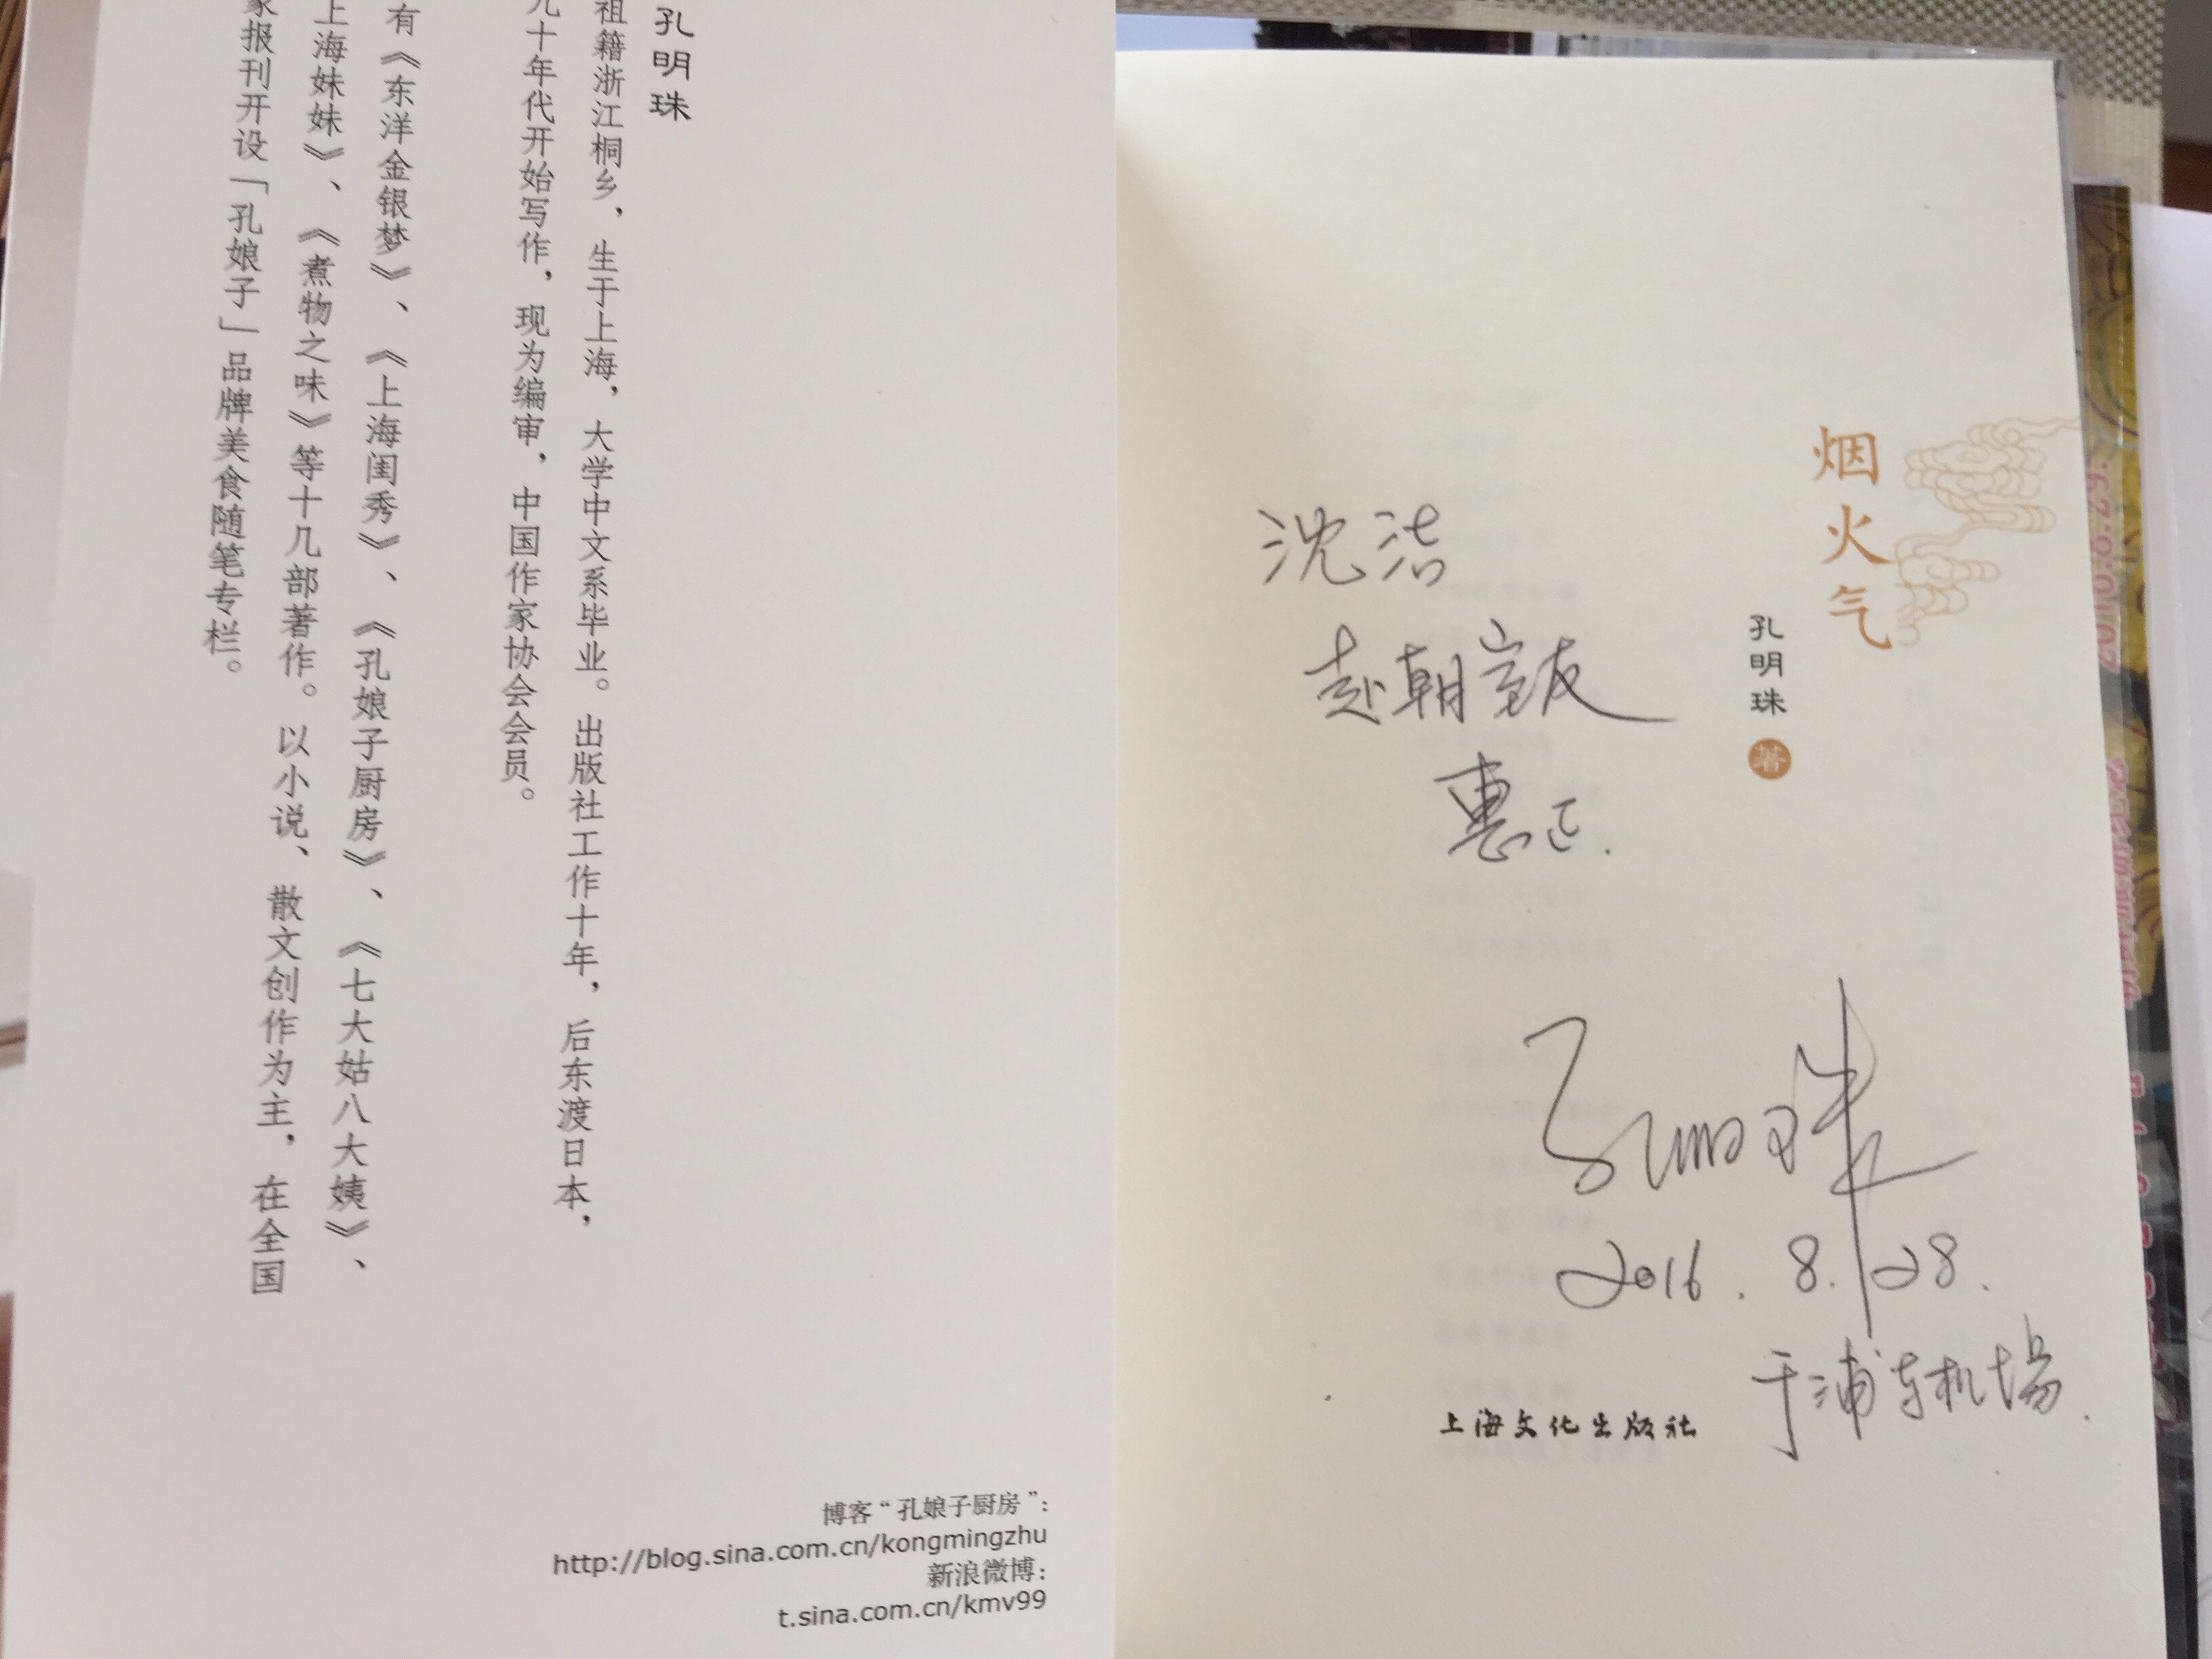 孔明珠
祖籍浙江桐乡，生于上海，大学中文系毕业。出版社工作十年，后东渡日本，
九十年代开始写作，现为编审，中国作家协会会员。
有《东洋金银梦》、《上海闺秀》、《孔娘子厨房》、《七大姑八大姨》、
上海妹妹》、《煮物之味》等十几部著作。以小说、散文创作为主，在全国
家报刊开设「孔娘子」品牌美食随笔专栏。
博客“孔娘子厨房”：
http://blog.sina.com.cn/kongmingzhu
新浪微博：
t.sina.com.cn/kmv99
烟火气
孔明珠 著
沈洁
赴朝室友
惠正.
孔明珠
2016.8.28.
于浦东机場.
上海文化出版社